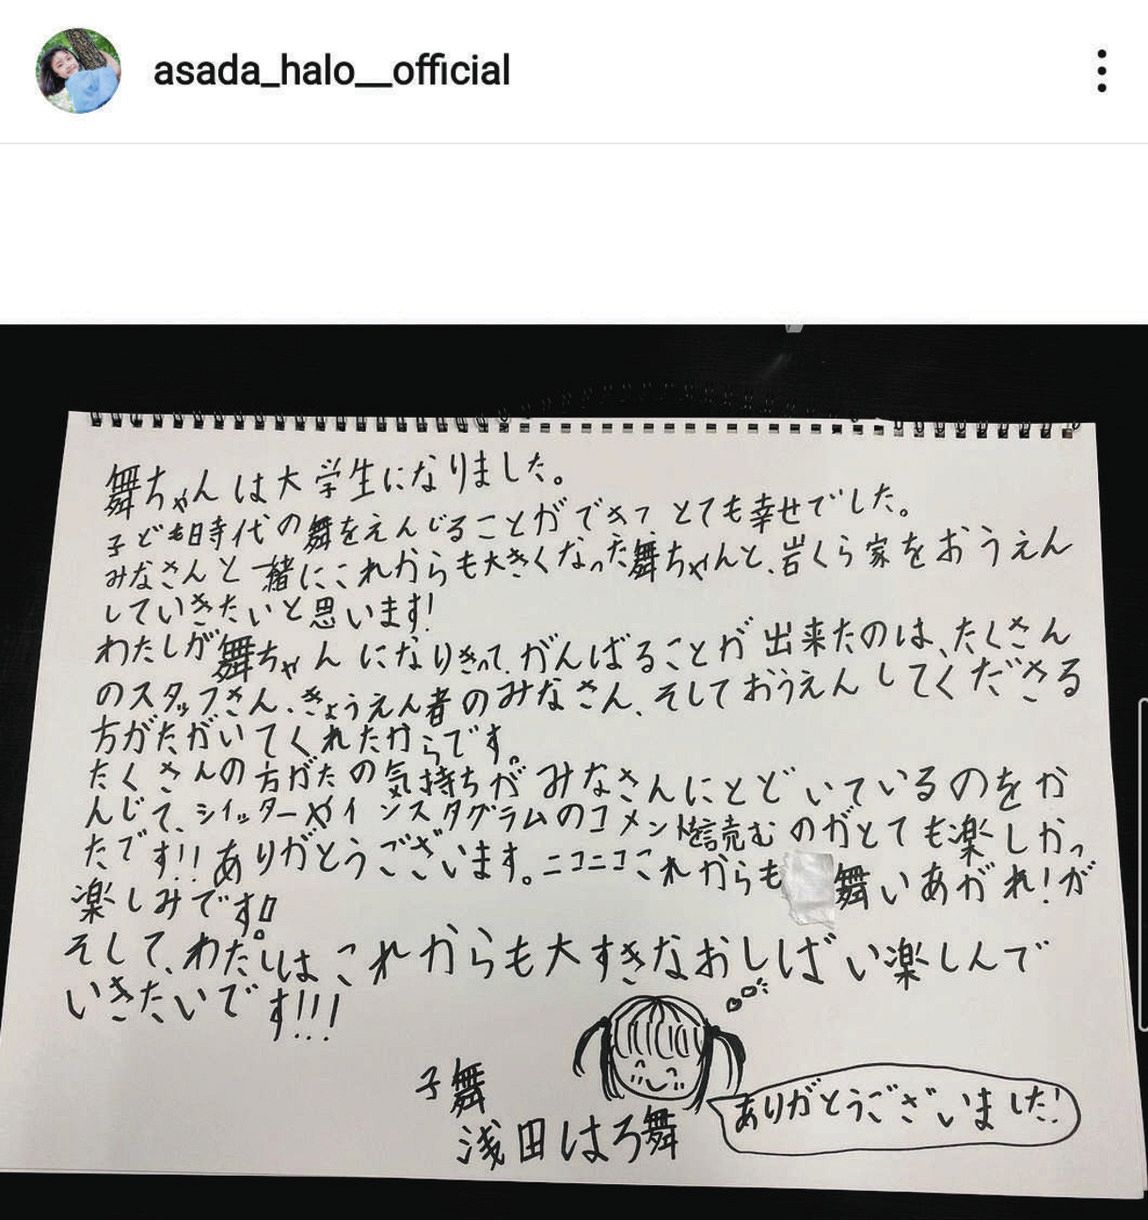 asada_halo__official
舞ちゃんは大学生になりました。
子ども時代の舞をえんじることができて とても幸せでした。
みなさんと一緒にこれからも大きくなった舞ちゃんと、岩くら家をおうえん
していきたいと思います!
わたしが舞ちゃんになりきって、がんばることが出来たのは、たくさん
のスタッフさん、きょうえん者のみなさん、そしておうえんしてくださる
方がたがいてくれたからです。
たくさんの方がたの気持ちがみなさんにとどいているのをか
んじて、ツイッターやインスタグラムのコメント読むのがとても楽しかっ
たです!!ありがとうございます。ニコニコこれからも舞いあがれ!が
楽しみです!!
そして、わたしはこれからも大すきなおしばい楽しんで
いきたいです!!!
子舞
浅田はろ舞
ありがとうございました!